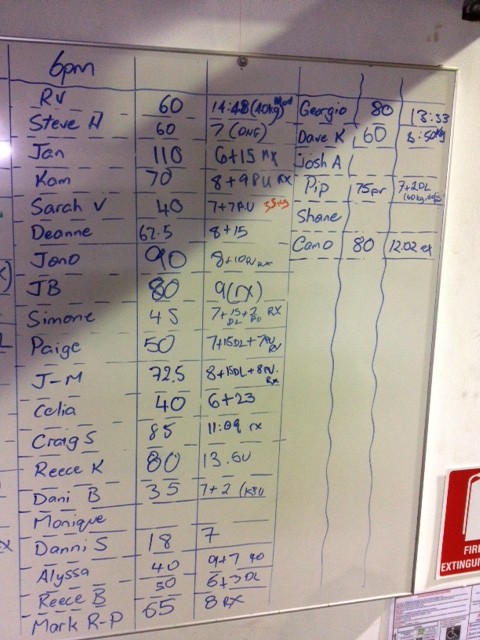 6pm
RV 60 14:48 (40kg)
Steve H 60 7 (ONE)
Jan 110 6+15 RX
Kam 70 8+9PU RX
Sarah V 40 7+7PU 35kg
Deanne 62.5 8+15
Jono 90 8+10PU RX
JB 80 9(rx)
Simone 45 7+15+2 RX
DL PU
Paige 50 7+15DL+7PU
RX
J-M 72.5 8+15DL+8PU.
RX
Celia 40 6+23
Craig S 85 11:09 rx
Reece K 80 13.50
Dani B 35 7+2
Monique
Danni S 18 7
Alyssa 40 9+7 40
Reece B 50 6+3DL
Mark R-P 65 8 RX
Georgio 80 13:33
Dave K 60 8:50kg
Josh A
Pip 75pr 7+2DL
Shane
Cano 80 12.02 rx
FIRE